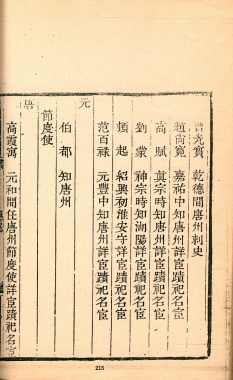 曹光實 乾德間唐州刺史
趙尚寬 嘉祐中知唐州詳臣蹟祀名宦
高賦 眞宗時知唐州詳臣蹟祀名宦
劉 神宗時知湖陽詳臣蹟祀名宦
起 紹興初淮安守詳臣蹟祀名宦
范百祿 元豐中知唐州詳臣蹟祀名宦
元
伯都 知唐州
節度使
唐
高霞寓 元和間任唐州節度使詳臣蹟祀名宦
215